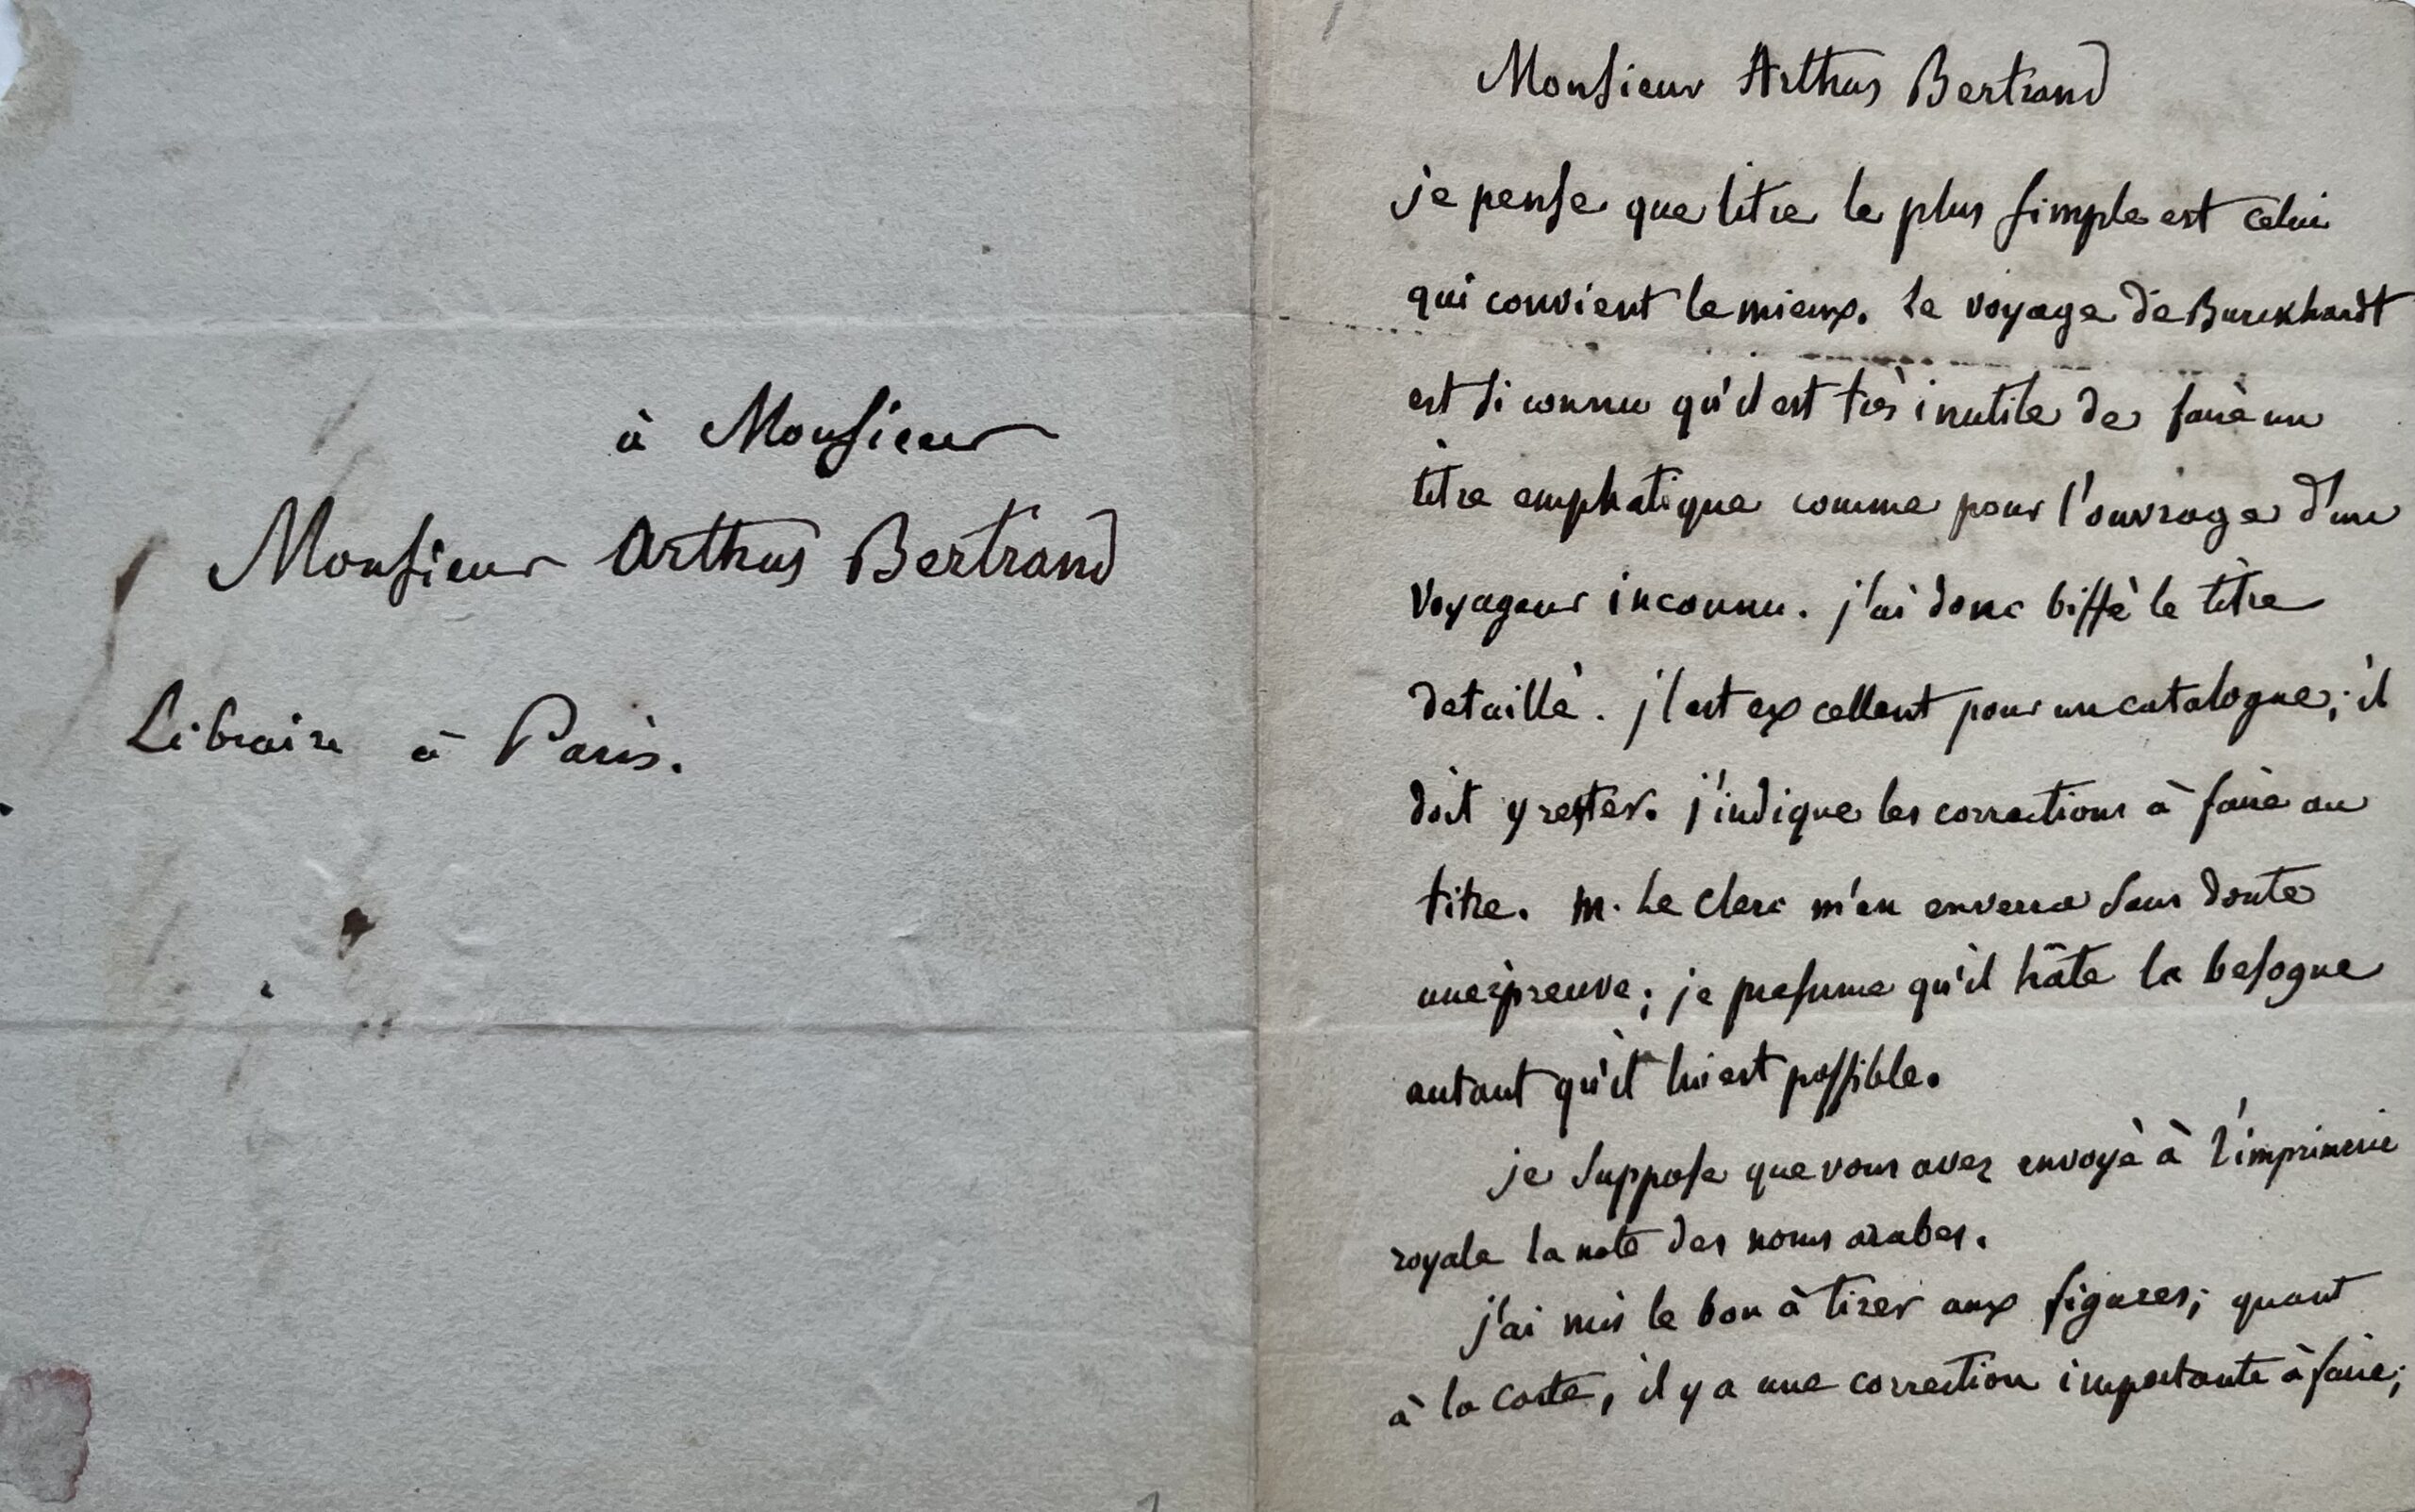 à Monsieur
Monsieur Arthus Bertrand
Libraire à Paris.
Monsieur Arthus Bertrand
je pense que titre le plus simple est celui
qui convient le mieux. le voyage de Burckhardt
est si connu qu'il est très inutile de faire un
titre emphatique comme pour l'ouvrage d'un
voyageur inconnu. j'ai donc biffé le titre
detaillé. il est excellent pour un catalogue; il
doit y rester. j'indique les corrections à faire au
titre. M. Le Clerc m'en enverra sans doute
une épreuve; je presume qu'il hâte la besogne
autant qu'il lui est possible.
je suppose que vous avez envoyé à l'imprimerie
royale la note des noms arabes.
j'ai mis le bon à tirer aux figures; quant
à la carte, il y a une correction importante à faire;